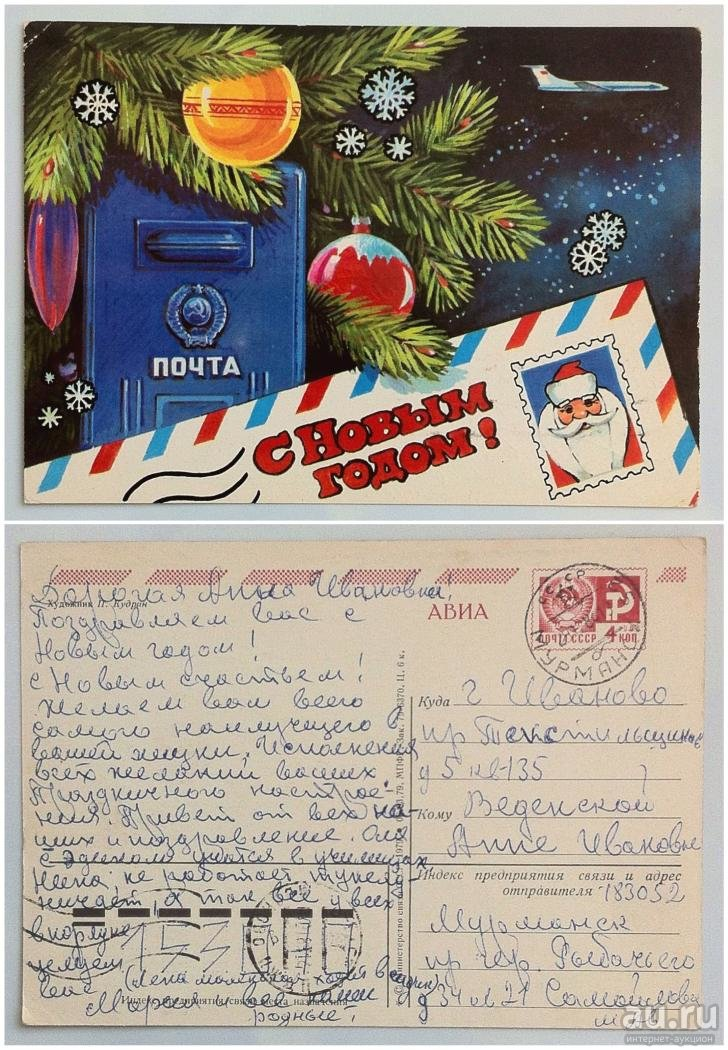 ПОЧТА
С НОВЫМ
ГОДОМ!
Дорогая Анна Ивановна!
Художник П. Кудрин
Поздравляем вас с
Новым годом!
С Новым счастьем!
Желаем вам всего
самого наилучшего в
вашей жизни, Исполнения
всех желаний ваших
Праздничного настрое-
ния. Привет от всех на-
ших и поздравление. Оля
с Эдиком учатся в училищах
Нина не работает
а так все у всех
в порядке
целуем
вас
(Лена маленькая ходит в садик)
родные!
Индекс предприятия связи места назначения
АВИА
СССР
ПОЧТА СССР
4 КОП
МУРМАНСК
Куда г Иваново
пр Текстильщиков
д 5 кв-135
Кому Веденской
Анне Ивановне
Индекс предприятия связи и адрес
отправителя 183052
Мурманск
пр Гер. Рыбачьего
д 34 кв. 21 Самойлова
au.ru
интернет-аукцион